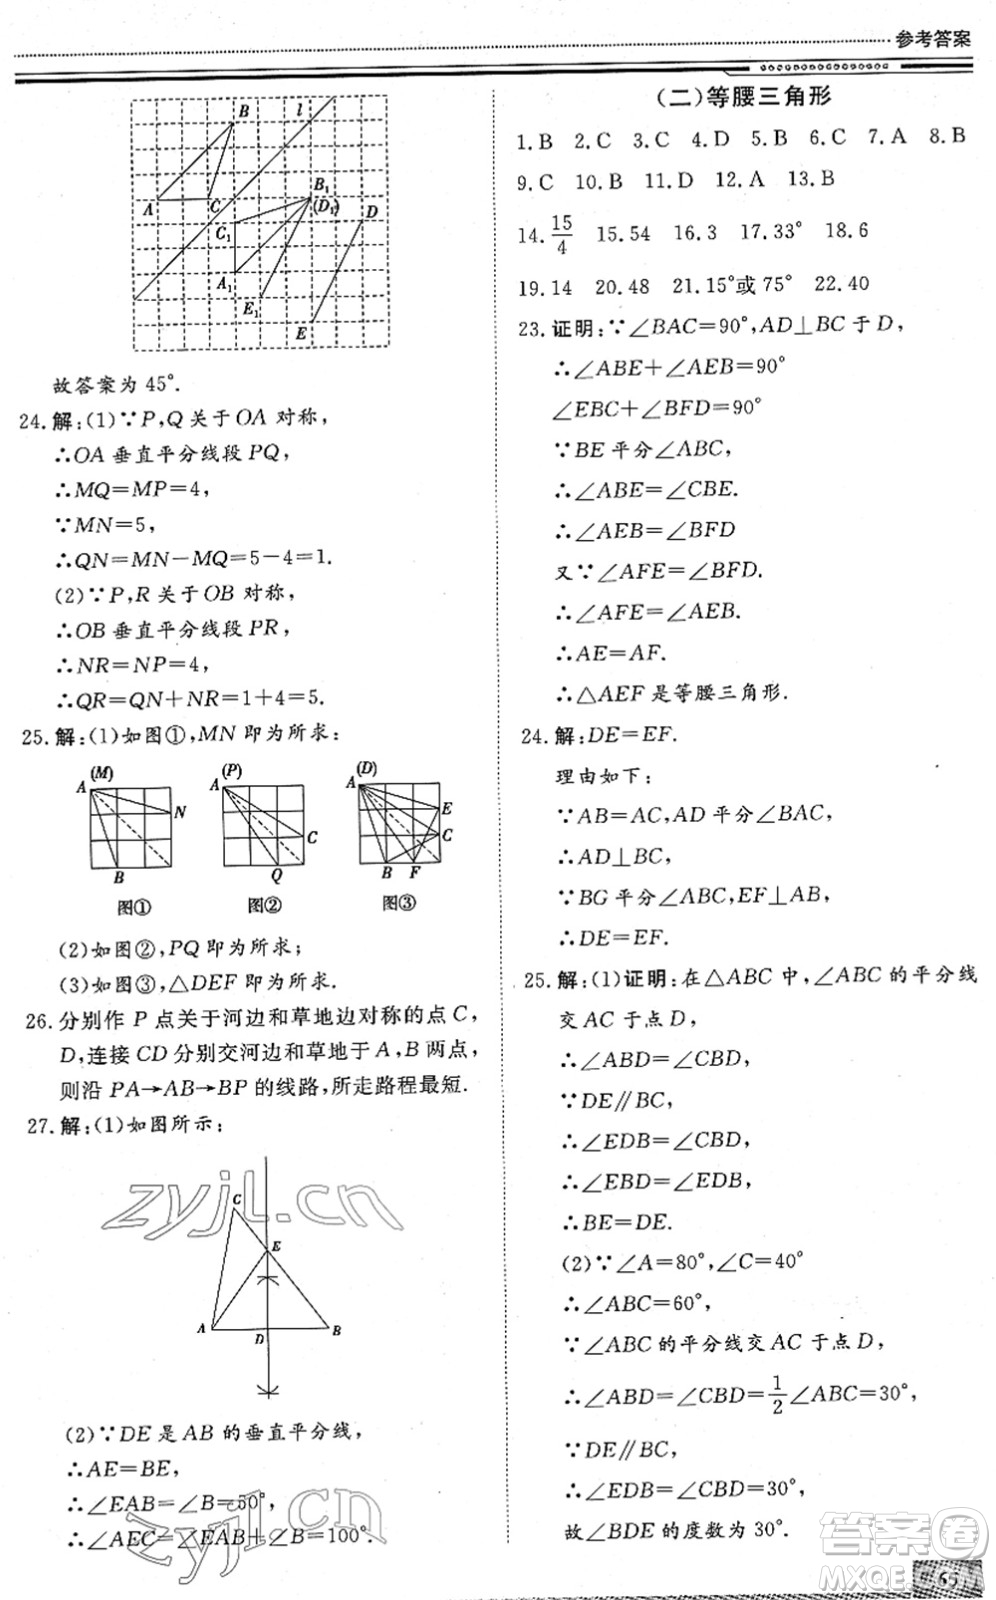 参考答案
B l
A C B₁ (D₁) D
C₁
A₁
E₁ E
故答案为 45°.
24.解:(1)∵P,Q 关于 OA 对称,
∴OA 垂直平分线段 PQ,
∴MQ=MP=4,
∵MN=5,
∴QN=MN-MQ=5-4=1.
(2)∵P,R 关于 OB 对称,
∴OB 垂直平分线段 PR,
∴NR=NP=4,
∴QR=QN+NR=1+4=5.
25.解:(1)如图①,MN 即为所求;
(M) (P) (D)
A N B
A C Q
A E C B F
图① 图② 图③
(2)如图②,PQ 即为所求;
(3)如图③,△DEF 即为所求.
26.分别作 P 点关于河边和草地边对称的点 C,
D,连接 CD 分别交河边和草地于 A,B 两点,
则沿 PA→AB→BP 的线路,所走路程最短.
27.解:(1)如图所示;
C
E
A D B
(2)∵DE 是 AB 的垂直平分线,
∴AE=BE,
∴∠EAB=∠B=50°,
∴∠AEC=∠EAB+∠B=100°.
(二)等腰三角形
1.B 2.C 3.C 4.D 5.B 6.C 7.A 8.B
9.C 10.B 11.D 12.A 13.B
14.15/4 15.54 16.3 17.33° 18.6
19.14 20.48 21.15°或 75° 22.40
23.证明:∵∠BAC=90°,AD⊥BC 于 D,
∴∠ABE+∠AEB=90°
∠EBC+∠BFD=90°
∵BE 平分∠ABC,
∴∠ABE=∠CBE.
∴∠AEB=∠BFD
又∵∠AFE=∠BFD.
∴∠AFE=∠AEB.
∴AE=AF.
∴△AEF 是等腰三角形.
24.解:DE=EF.
理由如下:
∵AB=AC,AD 平分∠BAC,
∴AD⊥BC,
∵BG 平分∠ABC,EF⊥AB,
∴DE=EF.
25.解:(1)证明:在△ABC 中,∠ABC 的平分线
交 AC 于点 D,
∴∠ABD=∠CBD,
∵DE∥BC,
∴∠EDB=∠CBD,
∴∠EBD=∠EDB,
∴BE=DE.
(2)∵∠A=80°,∠C=40°
∴∠ABC=60°,
∵∠ABC 的平分线交 AC 于点 D,
∴∠ABD=∠CBD=1/2∠ABC=30°,
∵DE∥BC,
∴∠EDB=∠CBD=30°,
故∠BDE 的度数为 30°.
65
zyjl.cn
zyjl.cn
答案卷
MXQE.COM